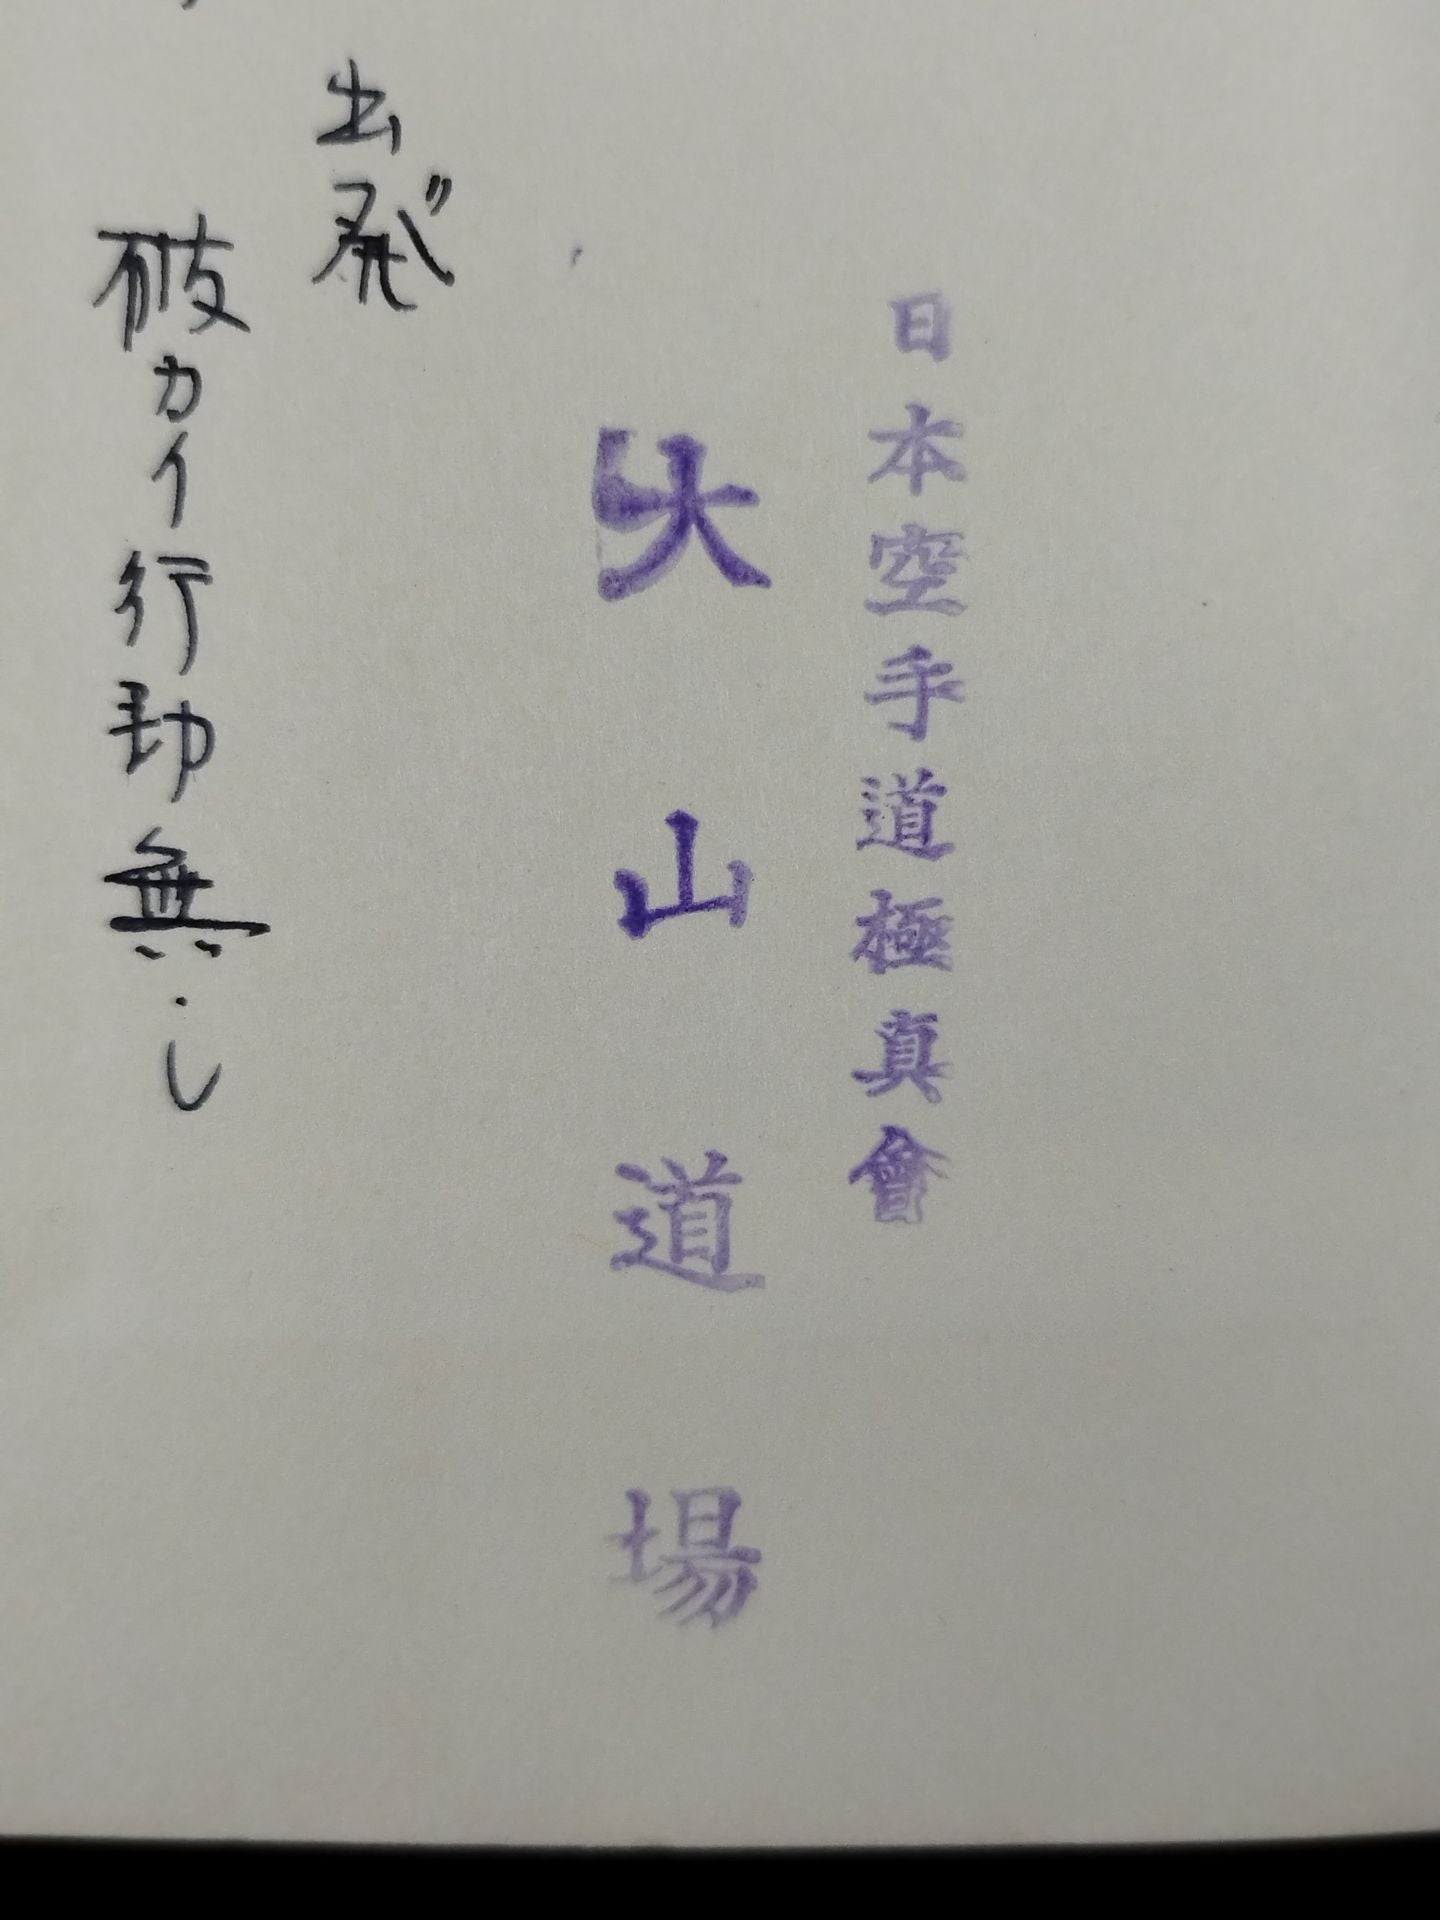 日本空手道極真會
大山道場
出発
破カイ行動無し